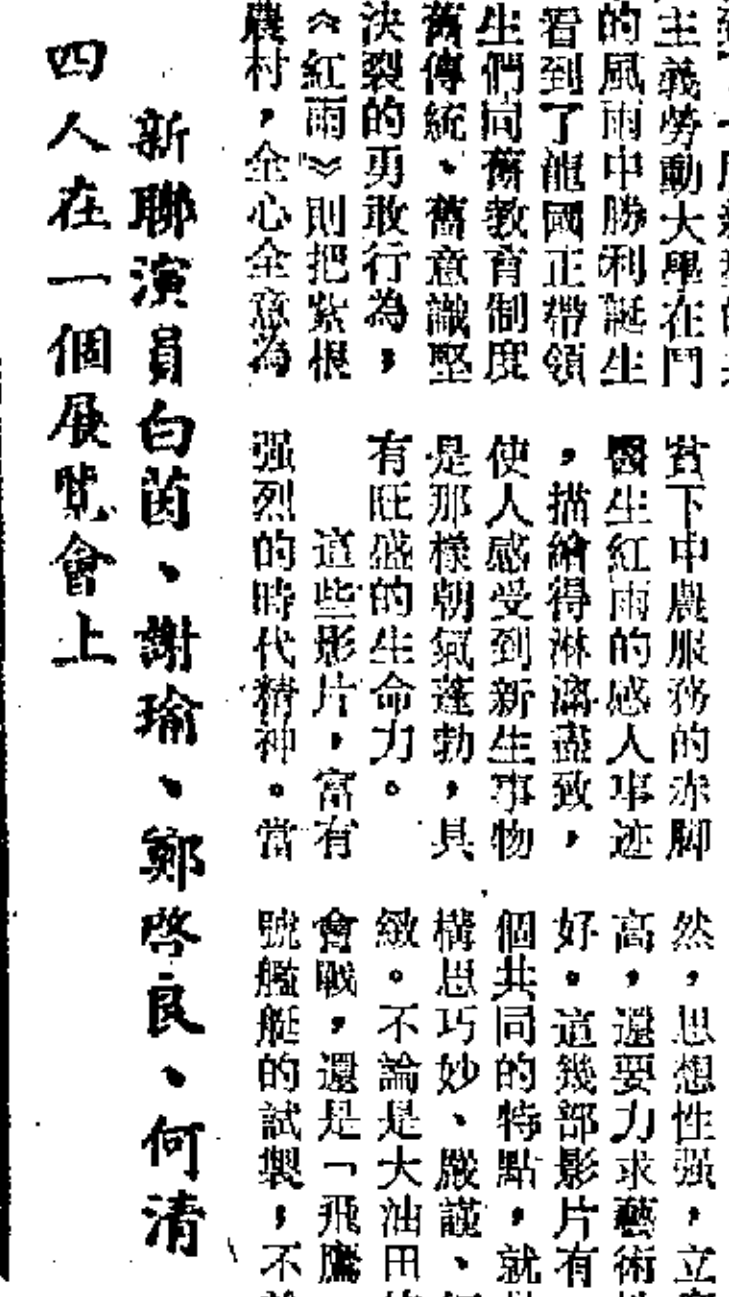 主義勞動大學在鬥
的風雨中勝利誕生
看到了龍國正帶領
生們同舊教育制度
舊傳統、舊意識堅
決裂的勇敢行為，
《紅雨》則把紮根
農村，全心全意為
貧下中農服務的赤脚
醫生紅雨的感人事迹
，描繪得淋漓盡致，
使人感受到新生事物
是那樣朝氣蓬勃，具
有旺盛的生命力。
這些影片，富有
强烈的時代精神。當
然，思想性强，立
高，還要力求藝術
好。這幾部影片有
個共同的特點，就
構思巧妙、嚴謹、
緻。不論是大油田
會戰，還是「飛鷹
號艦艇的試製，不
新聯演員白茵、謝瑜、鄭啓良、何清
四人在一個展覽會上